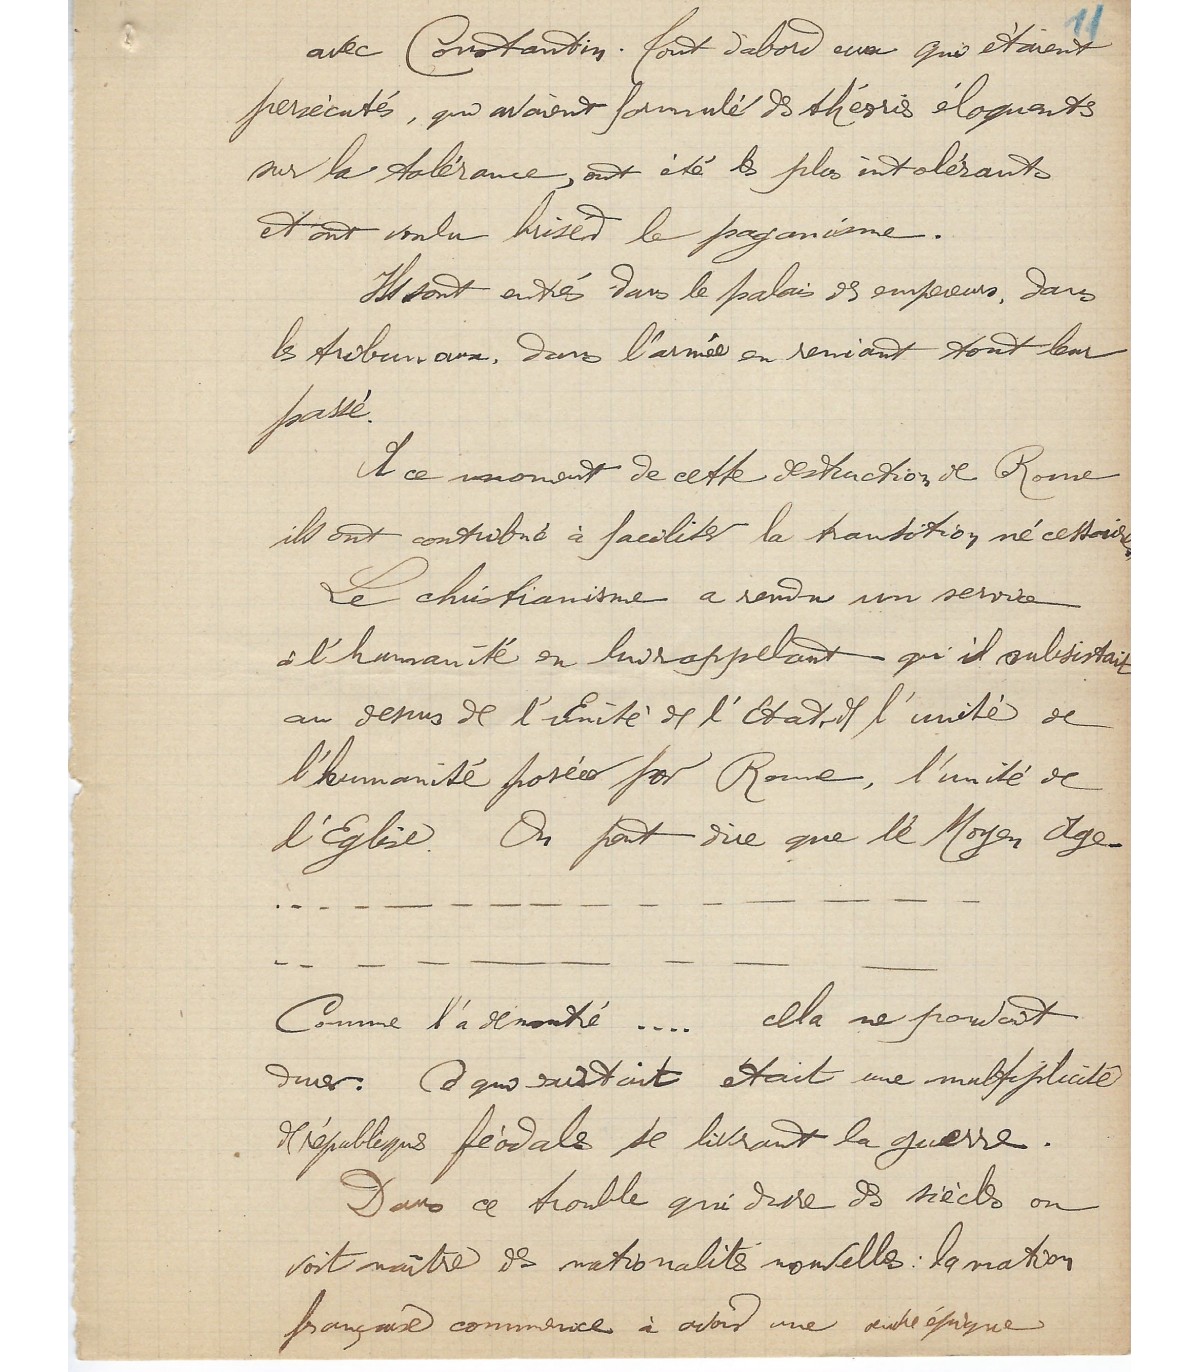 11
avec Constantin. Tout d'abord eux qui étaient
persécutés, qui avaient formulé des théories éloquentes
sur la tolérance, ont été les plus intolérants
et ont voulu briser le paganisme.
Ils sont entrés dans le palais des empereurs, dans
les tribunaux, dans l'armée en reniant tout leur
passé.
A ce moment de cette destruction de Rome
ils ont contribué à faciliter la transition nécessaire,
Le christianisme a rendu un service
à l'humanité en lui rappelant qu'il subsistait
au dessus de l'Unité de l'État, de l'unité de
l'humanité posée par Rome, l'unité de
l'Eglise. On peut dire que le Moyen Age-
Comme l'a démontré .... cela ne pouvait
durer. Ce qui existait était une multiplicité
de républiques féodales se livrant la guerre.
Dans ce trouble qui dure des siècles on
voit naître des nationalités nouvelles : la nation
française commence à avoir une